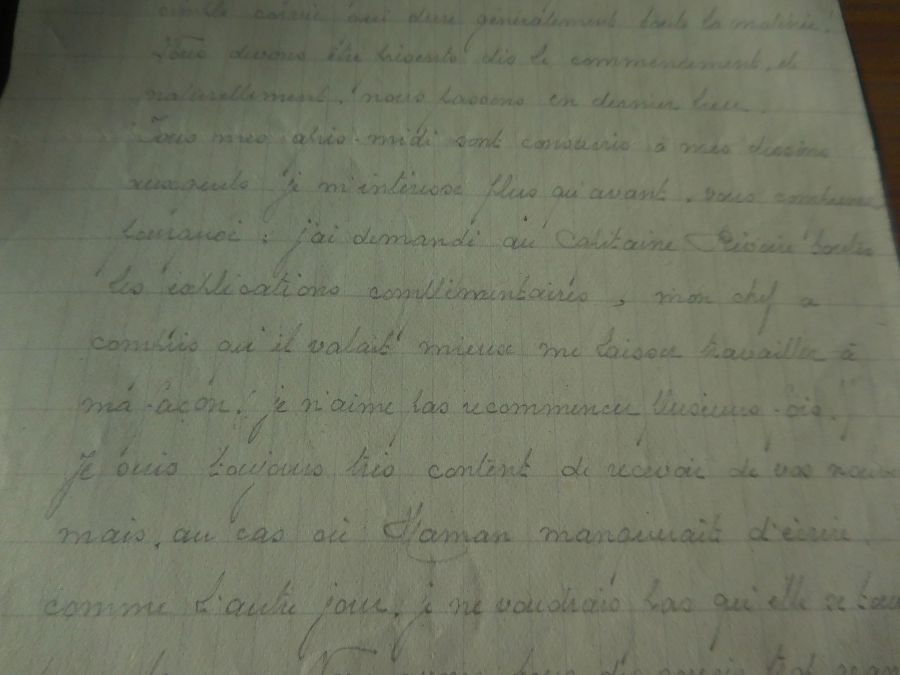 qui dure généralement toute la matinée!
Nous devons être présents dès le commencement, et
naturellement, nous passons en dernier lieu.
Tous mes après-midi sont consacrés à mes dessins
je m'intéresse plus qu'avant, vous comprenez
pourquoi : j'ai demandé au Capitaine Rivoire toutes
les explications complémentaires, mon chef a
compris qu'il valait mieux me laisser travailler à
ma façon! je n'aime pas recommencer plusieurs fois!
Je suis toujours très content de recevoir de vos
mais, au cas où Maman manquerait d'écrire,
comme l'autre jour, je ne voudrais pas qu'elle se